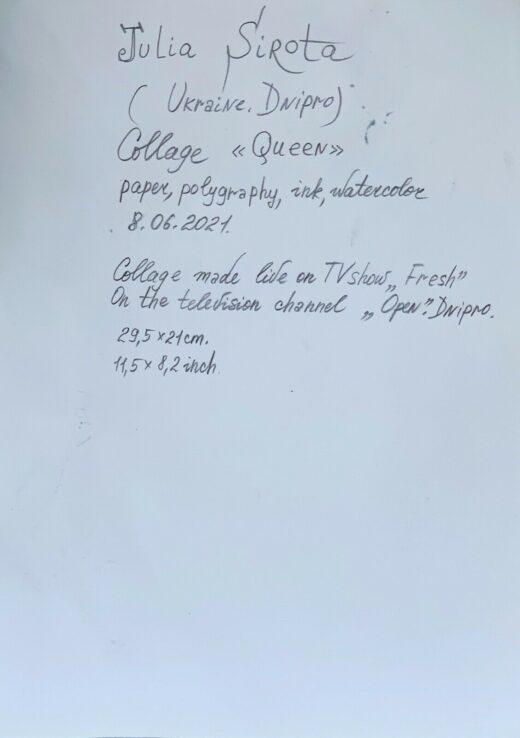 Julia Sirota
( Ukraine. Dnipro)
Collage «Queen»
paper, polygraphy, ink, watercolor
8.06.2021.
Collage made live on TVshow „Fresh”
On the television channel „Open”. Dnipro.
29,5×21cm.
11,5×8,2inch.